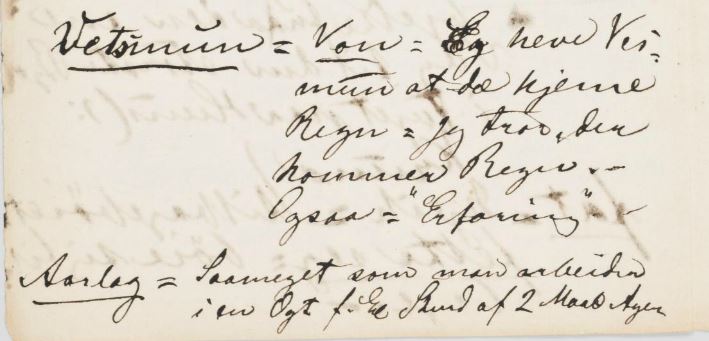 Vetsmun = Von = Eg heve Ves-
mun at dæ kjeme
Regn = jeg tror, der
kommer Regn. -
Ogsaa = "Erfaring" -
Aarlag = Saameget som man arbeider
i en Ögt f. Ex Skurd af 2 Maal Ager